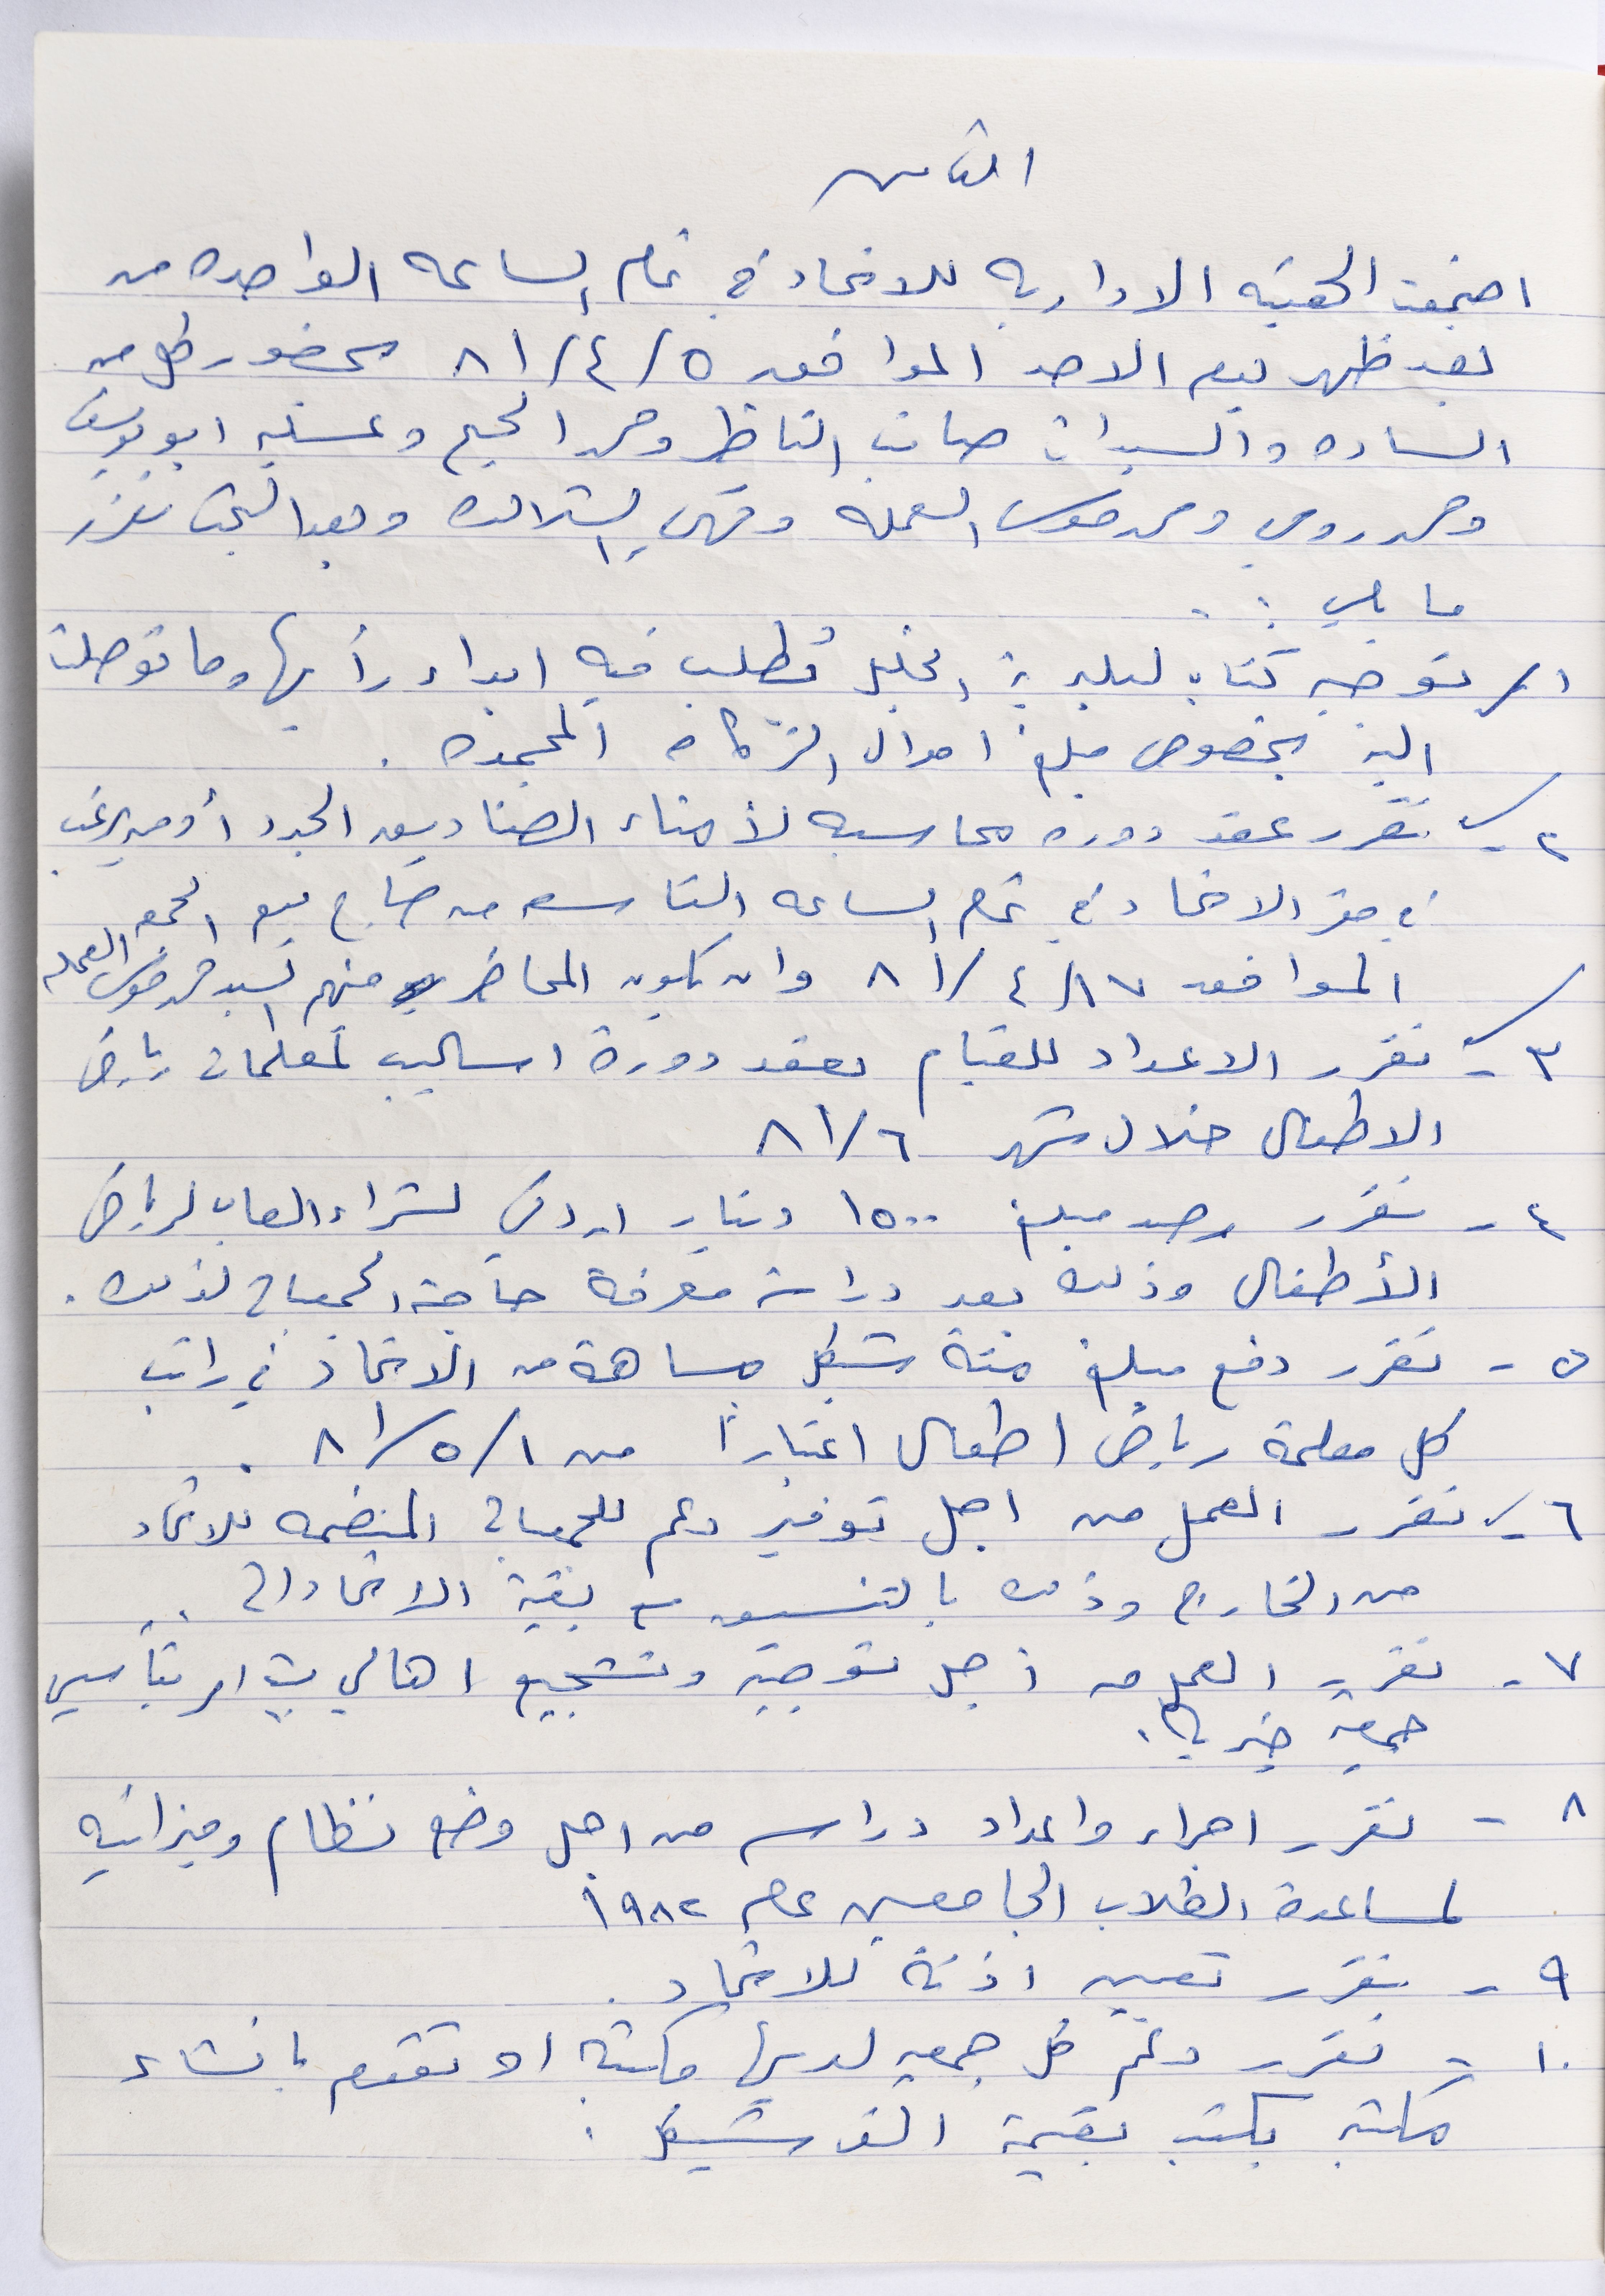 الثامن
اجتمعت الهيئه الاداريه للاتحاد في تمام الساعه الواحده من
بعد ظهر يوم الاحد الموافق ٥/٤/٨١ بحضور كل من
الساده والسيدات الناظر ومحمد وعسليه ابو يوسف
ومحمد موسى العمله وبعد البحث تقرر
ما يلي :
١ـ توجيه كتاب لبلدية الخليل نطلب فيه ابداء رأيها وما توصلت
اليه بخصوص مبلغ اموال الزكاة المجمده .
٢ـ تقرر عقد دوره محاسبه لأمناء الصناديق الجدد أو من يرغب
في مقر الاتحاد في تمام الساعه التاسعه من صباح يوم الجمعه
الموافق ١٧/٤/٨١ وان يكون المحاضر منهم السيد محمد موسى العمله
٣ـ تقرر الاعداد للقيام بعقد دورة اساليب لمعلمات رياض
الاطفال خلال شهر ٦/٨١
٤ـ تقرر رصد مبلغ ١٥٠٠ دينار اردني لشراء العاب لرياض
الأطفال وذلك بعد دراسة معرفة حاجة الجمعيات لذلك .
٥ـ تقرر دفع مبلغ مئة شيكل مساهمة من الاتحاد في راتب
كل معلمة رياض اطفال اعتباراً من ١/٥/٨١ .
٦ـ تقرر العمل من اجل توفير دعم للجمعيات المنضمه للاتحاد
من الخارج وذلك بالتنسيق مع بقية الاتحادات ..
٧ـ تقرر العمل من اجل توجيه وتشجيع اهالي بيت امر بتأسيس
جمعيه خيريه .
٨ـ تقرر اجراء واعداد دراسه من اجل وضع نظام وميزانيه
لمساعدة الطلاب الجامعيين عام ١٩٨٢
٩ـ تقرر تعيين اذنة للاتحاد .
١٠ـ تقرر دعم كل جمعيه لديها مكتبة او تقوم بانشاء
مكتبه بكتب بقيمة الف شيكل .